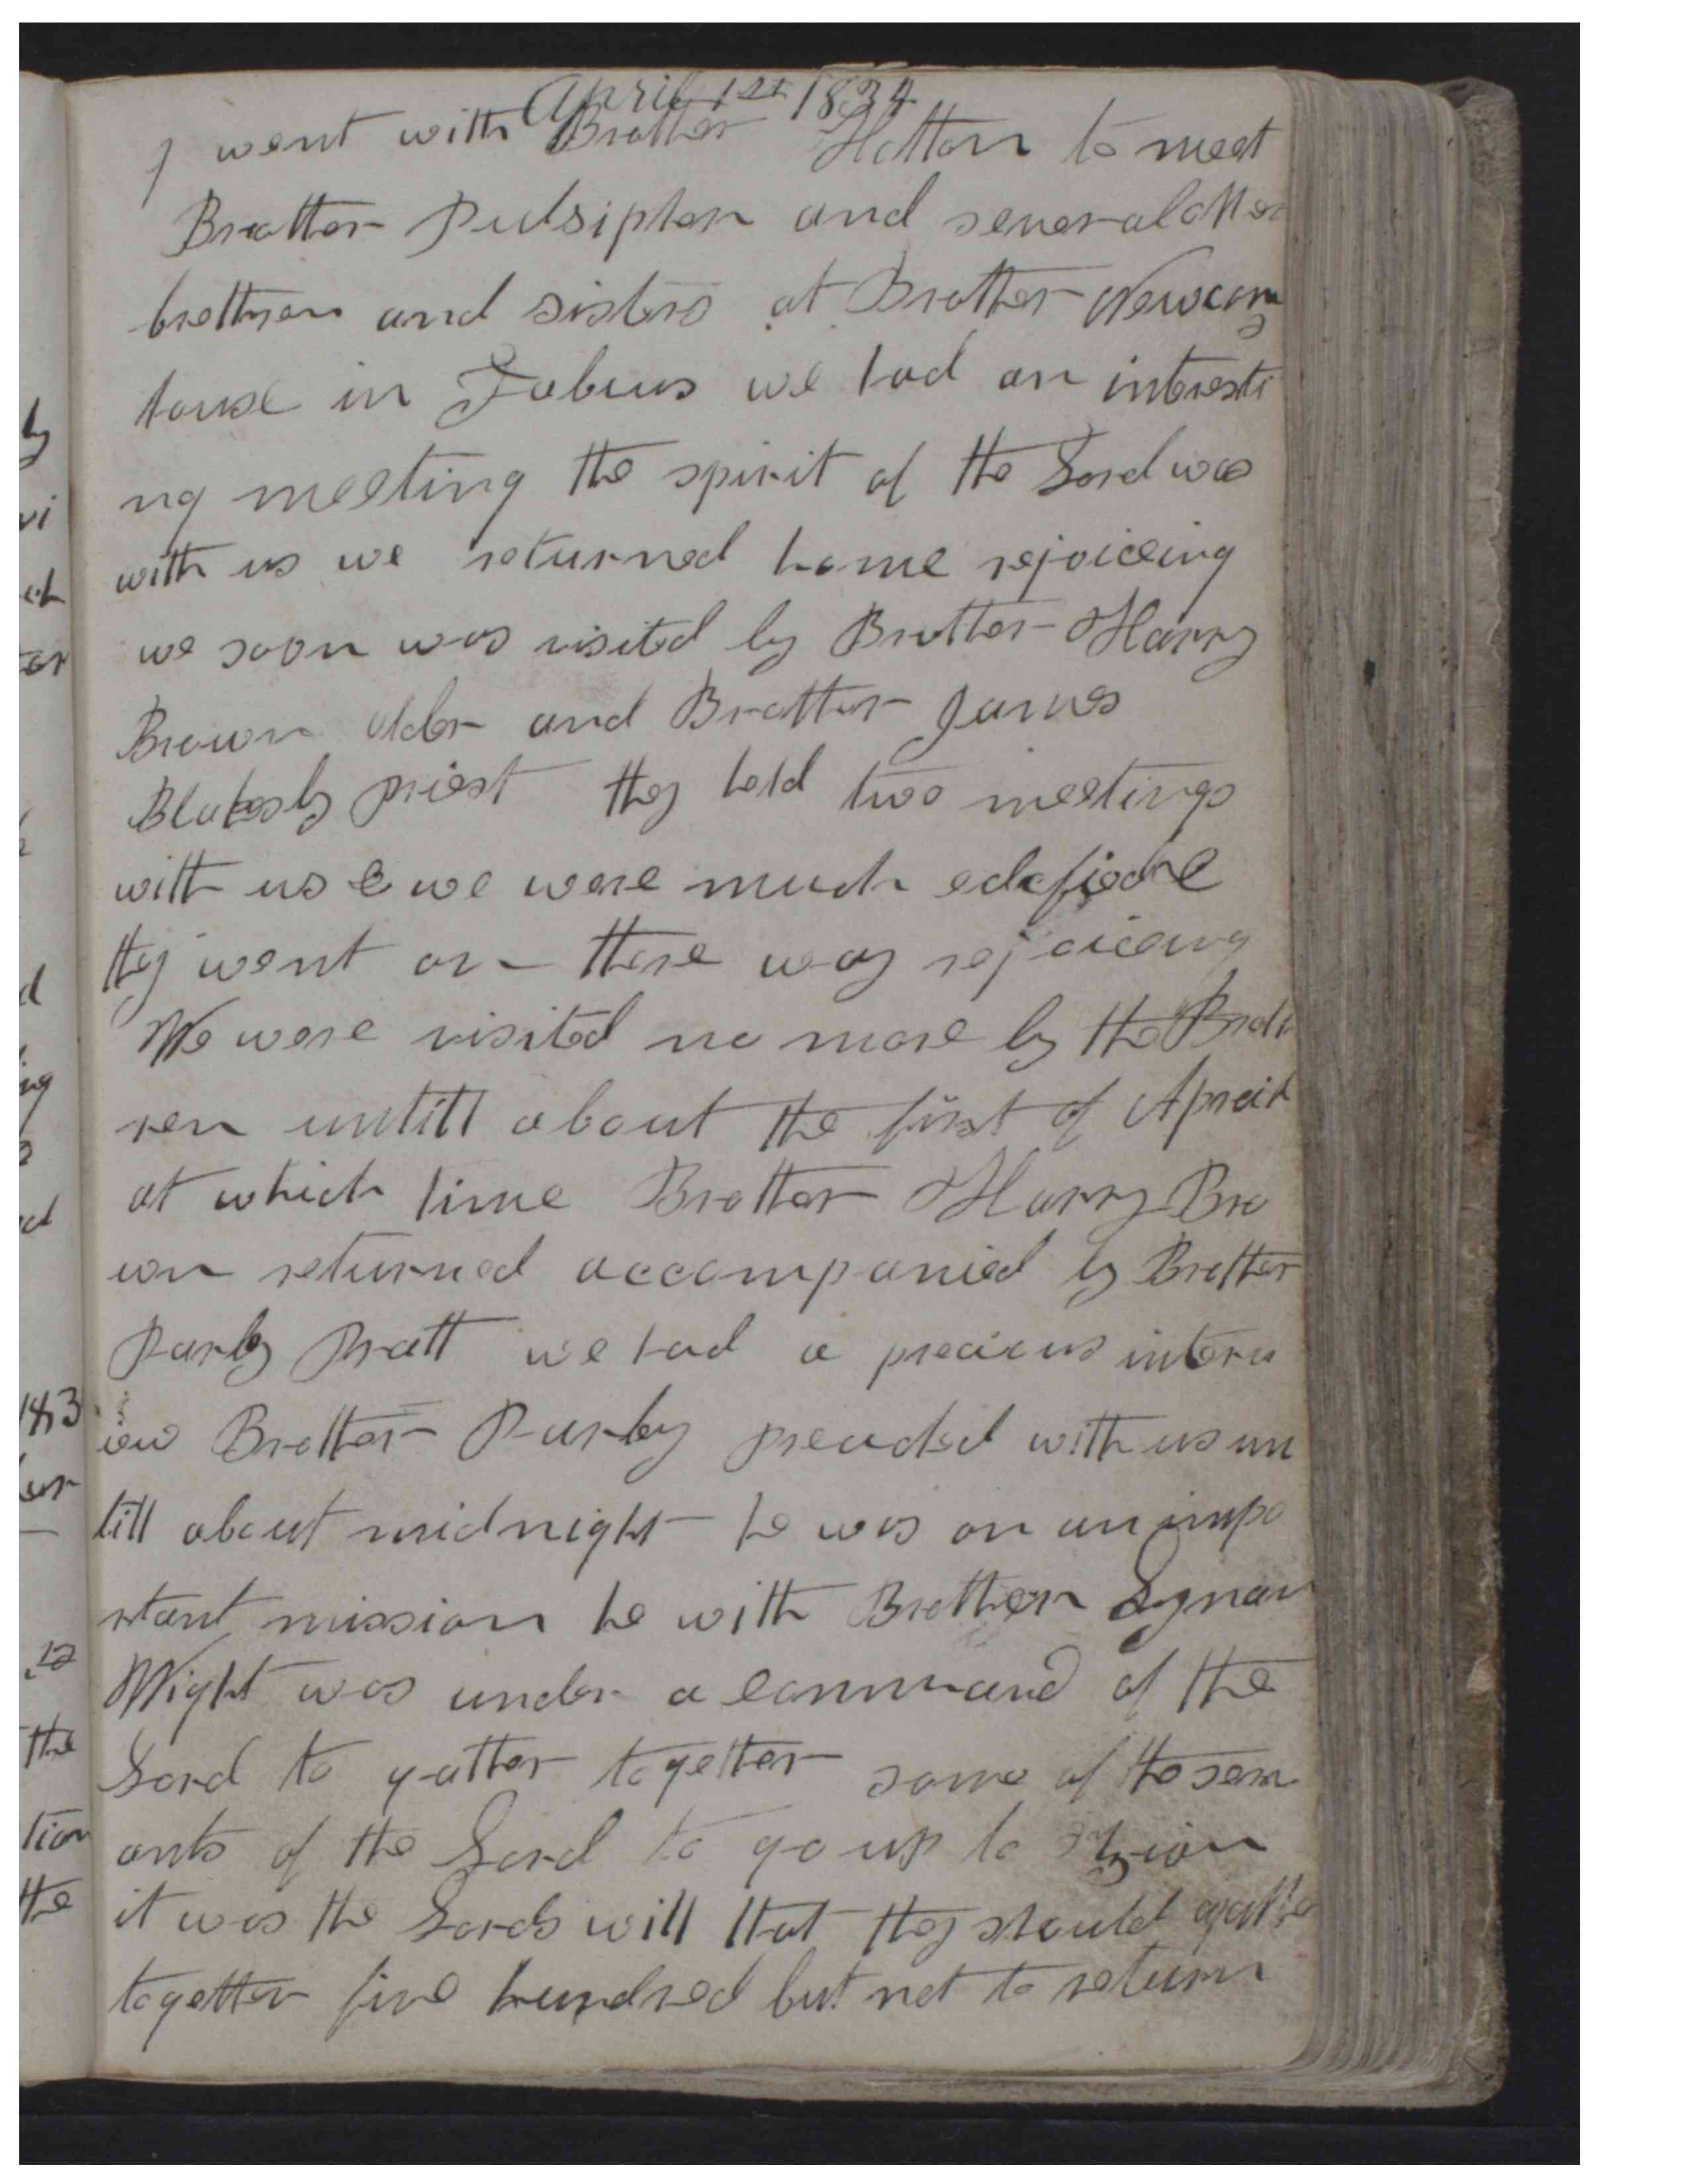 April 1st 1834
I went with Brother Holton to meet
Brother Pulsipher and several other
brethren and sisters at Brother Newcom
house in Fabius we had an interesti
ng meeting the spirit of the Lord was
with us we returned home rejoiceing
we soon was visited by Brother Harry
Brown elder and Brother James
Blakesly priest they held two meetings
with us & we were much edefied
they went on there way rejoiceing
We were visited no more by the Breth
ren untill about the first of Apreil
at which time Brother Harry Bro
wn returned accompanied by Brother
Parley Pratt we had a precious interv
iew Brother Parley preached with us un
till about midnight he was on an impo
rtant mission he with Brother Lyman
Wight was under a command of the
Lord to gather together some of the serv
ants of the Lord to go up to Zion
it was the Lords will that they should gathe
together five hundred but not to return